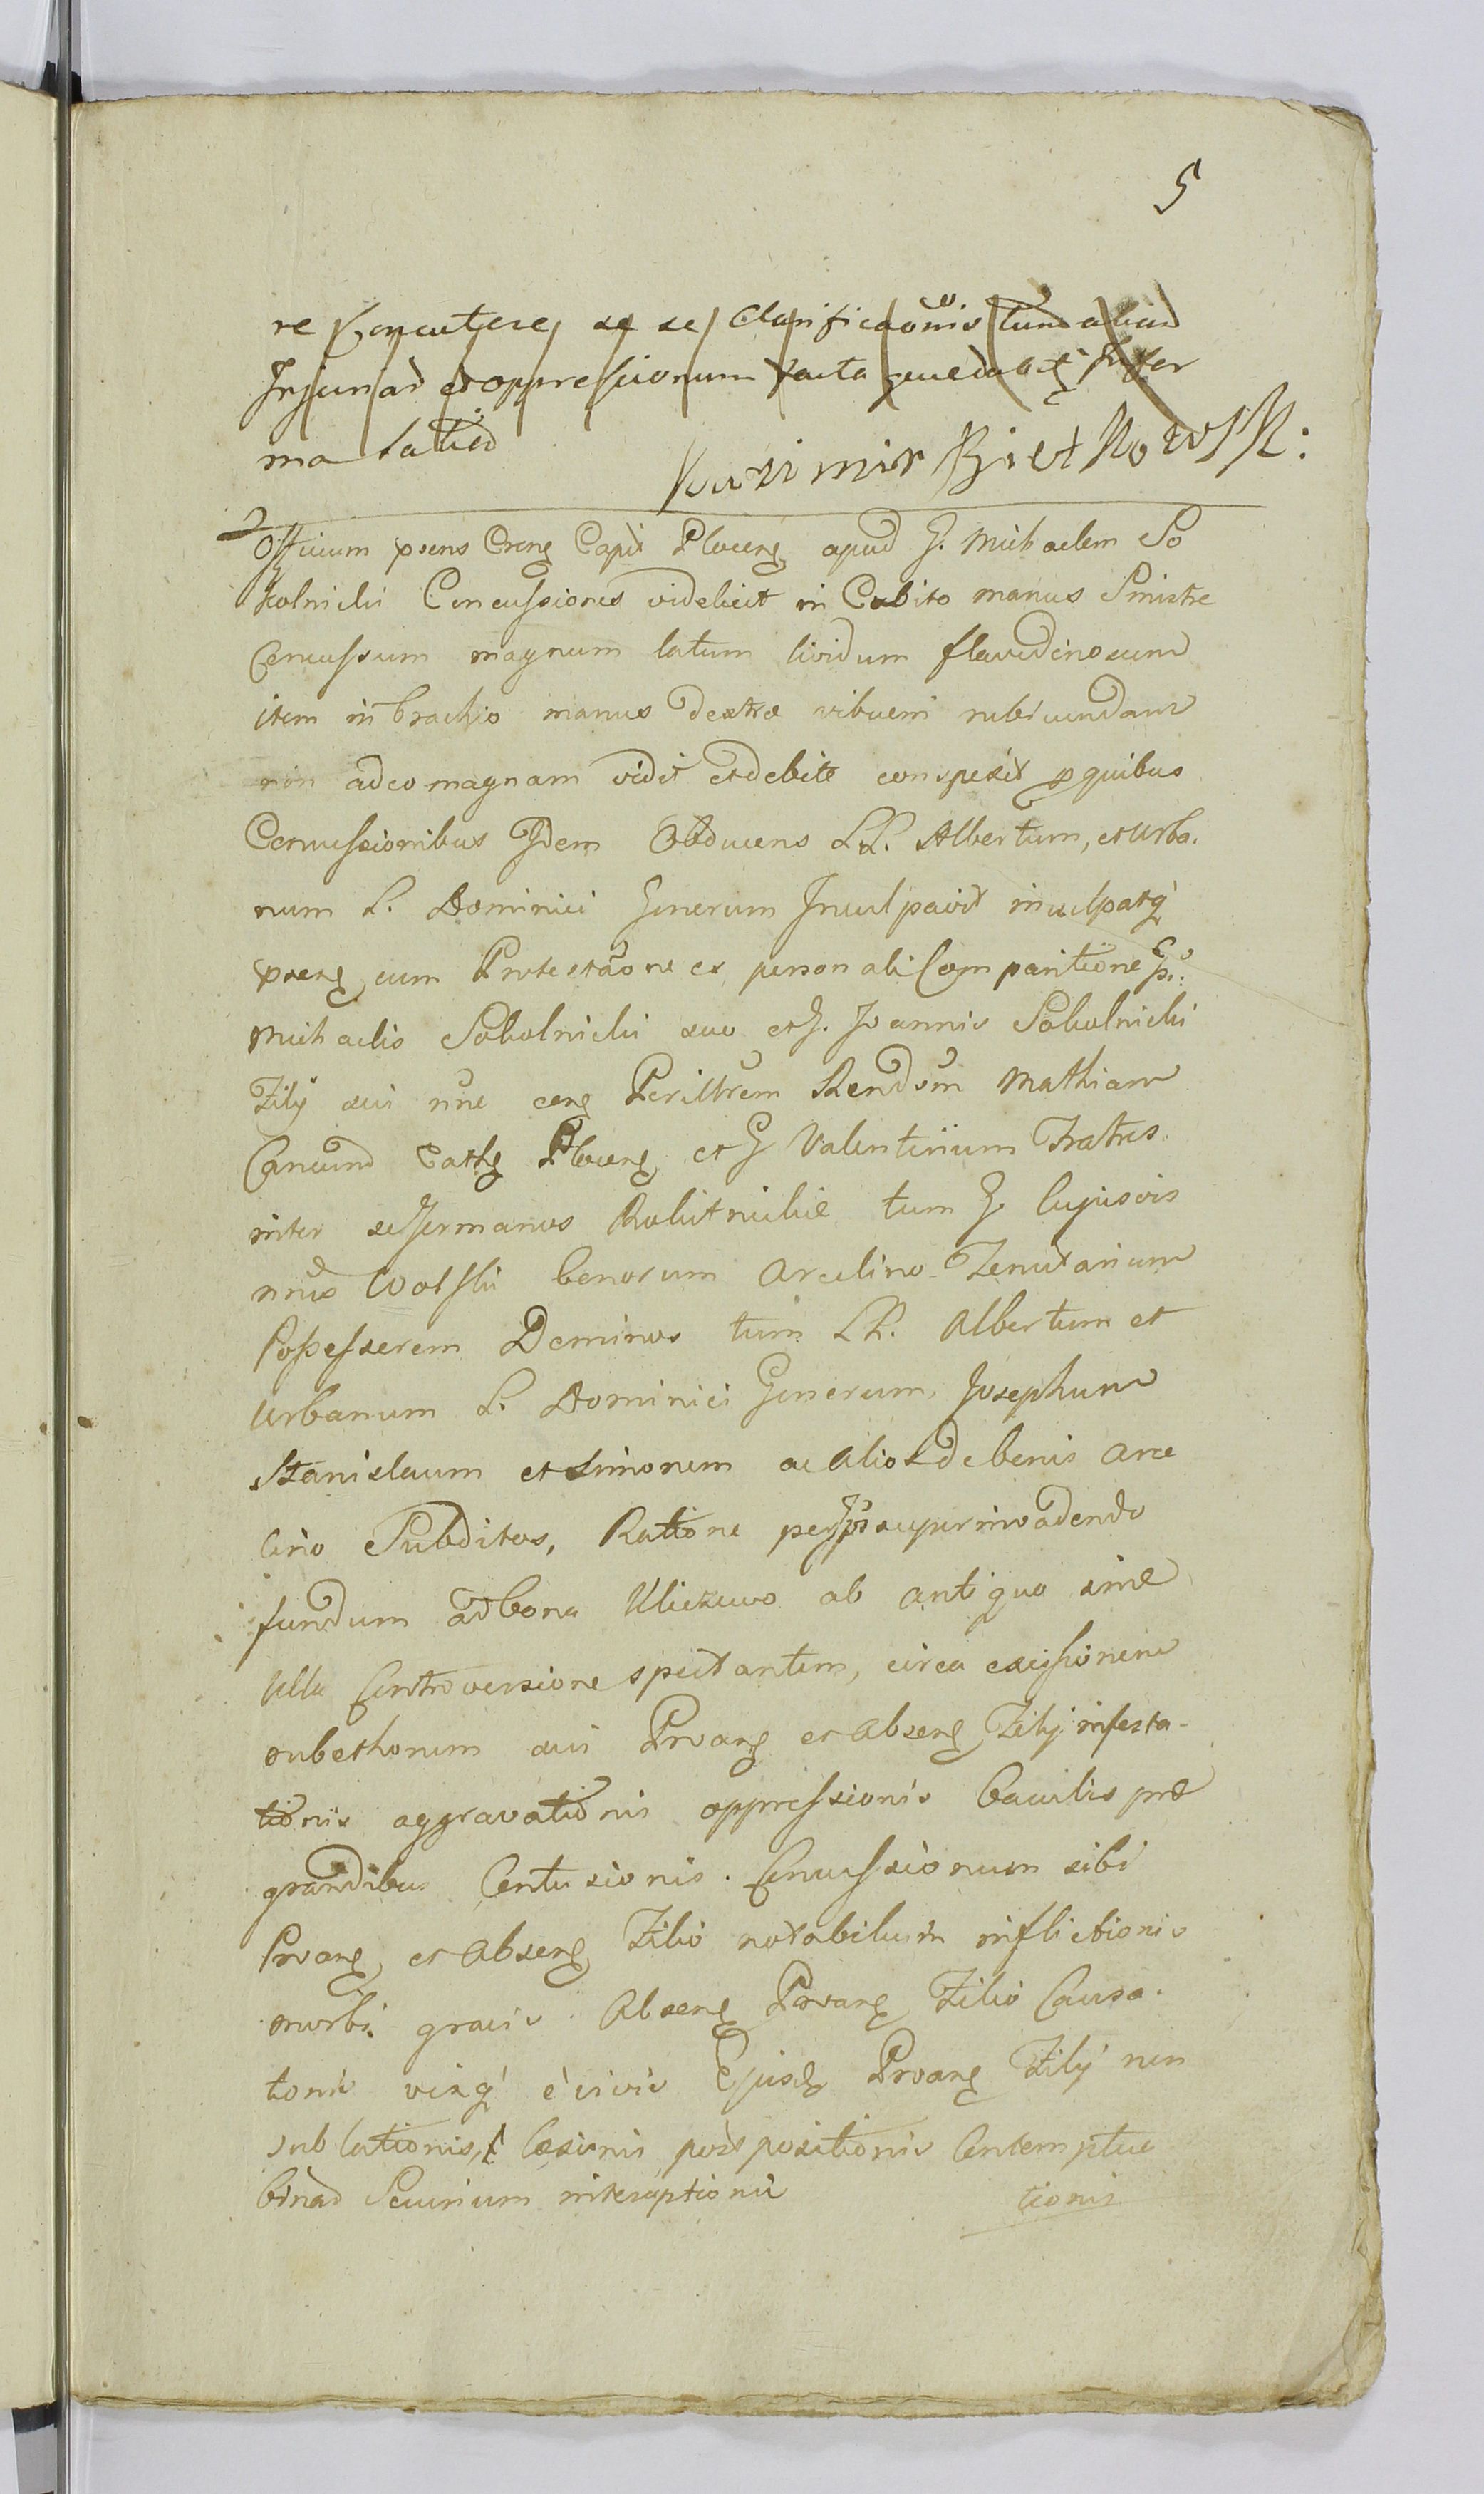 5
re Concutere se se Clarificãonis tum aliud
Injuriar et oppressionum facta quedabtq Infor
ma latius
Kazimir Bietkowsk:
Officium prens Crens Capit Plocens apud G. Michaelem So
kolnicki Concussiones videlicit in Cubito manus Sinistre
Concussum magnum latum lividum flavedinosum
item in brachio manus dextræ vibicem rubicundam
non adeo magnam vidit et debite conspexit p quibus
Concussionibus Idem Obducens LL. Albertum, et Urba.
num L. Dominici Generum Inculpavit inculpatq
prens cum Protestãone ex personali Comparitione G pi:
Michaelis Sokolnicki suo et G. Joannis Sokolnicki
Filij sui nñe cong Perillrem Rendum Mathiam
Cancum Cathg Plocens et G Valentinum Fratres
inter se germanos Rokitnickie tum G
nnus Wolski bonorum Arcelino Tenutarium
Possessorem Dominos tum LL. Albertum et
Urbanum L. Dominici Generum, Josephum
Stanislaum et Simonem ac alios de bonis Arce
lino Subditos, Ratione per Ipsos superinvadendo
fundum ad bona Kliczewo ab antiquo sine
Ulla Controversione spectantem, circa excissionem
rubethorum sui Prvang et Absens Filij infesta-
tionis aggravationis oppressionis bacculis præ
grandibus Contusionis. Concussionum sibi
Prvang et Absens Filio notabilium inflictionis
morbi gravis Absens Prvang Filio Causa.
tonis vixq è vivis Ejusd Prvang Filij non
sublationis, læsionis postpositionis Contemptus
binad Securium interuptionis
tionis